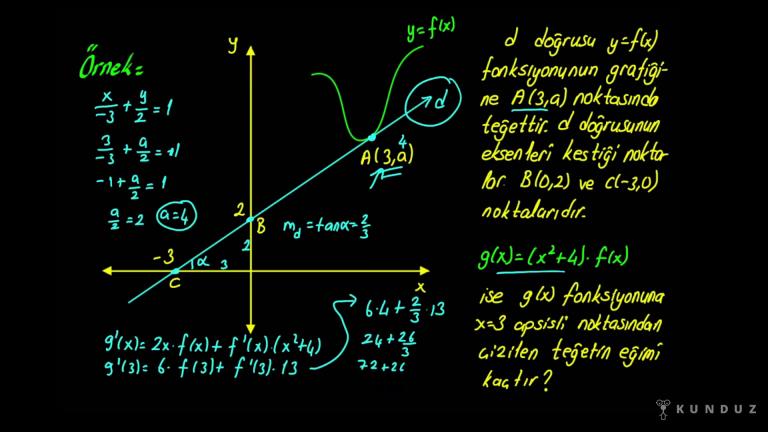 Örnek=
x/-3 + y/2 = 1
3/-3 + a/2 = 1
-1 + a/2 = 1
a/2 = 2 a=4
y
y=f(x)
d
4
A(3,a)
2
B
m_d = tanα = 2/3
2
-3
α
3
C
x
g'(x) = 2x · f(x) + f'(x) · (x²+4)
g'(3) = 6 · f(3) + f'(3) · 13
6·4 + 2/3 · 13
24 + 26/3
72+26
d doğrusu y=f(x)
fonksiyonunun grafiği-
ne A(3,a) noktasında
teğettir. d doğrusunun
eksenleri kestiği nokta-
lar B(0,2) ve C(-3,0)
noktalarıdır.
g(x) = (x²+4) · f(x)
ise g(x) fonksiyonuna
x=3 apsisli noktasından
çizilen teğetin eğimi
kaçtır?
KUNDUZ